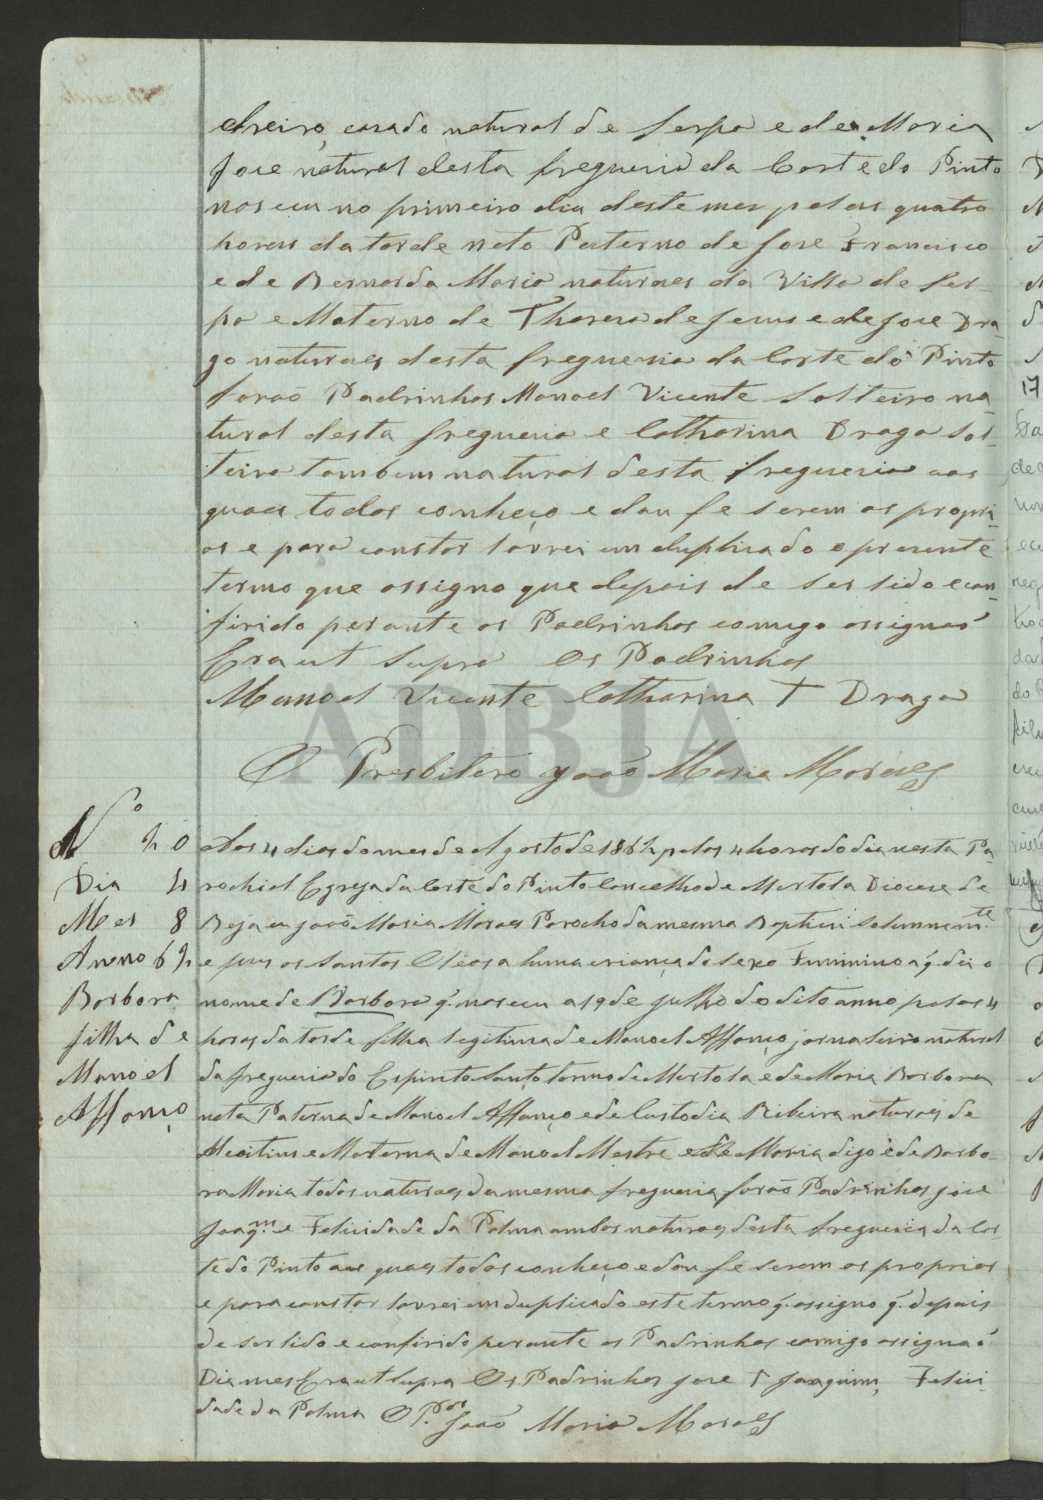 dreiro, casado natural de Serpa e de Maria
Jose natural desta freguesia da Corte do Pinto
nasceu no primeiro dia deste mes pelas quatro
horas da tarde neto Paterno de Jose Francisco
e de Bernarda Maria naturaes da Villa de Ser-
pa e Materno de Thereza de Jesus e de Jose Dra-
go naturaes desta freguesia da Corte do Pinto
forão Padrinhos Manoel Vicente Solteiro na-
tural desta freguesia e Catharina Draga Sol-
teira tambem natural desta freguesia aos
quaes todos conheço e dou fe serem os propri-
os e para constar lavrei em duplicado o presente
termo que assigno que depois de ser lido e con-
firido perante os Padrinhos comigo assignaõ
Era ut Supra Os Padrinhos
Manoel Vicente Catharina † Draga
O Presbitero Joaõ Maria Moraes
ADBJA
Nº 20
Dia 4
Mes 8
Anno 62
Barbora
filha de
Manoel
Affonço
Aos 4 dias do mes de Agosto de 1862 pelas 4 horas do dia nesta Pa-
rochial Egreja da Corte do Pinto Concelho de Mertola Diocese de
Beja eu Joaõ Maria Moraes Parocho da mesma Baptizei solemnemte
e pus os Santos Oleos a huma criança do sexo Feminino a q. dei o
nome de Barbora q. nasceu a 19 de Julho do dito anno pelas 4
horas da tarde filha legitima de Manoel Affonço jornaleiro natural
da freguesia do Espirito Santo termo de Mertola e de Maria Barbora
neta Paterna de Manoel Affonço e de Custodia Ribeira naturaes de
Alcoitim e Materna de Manoel Mestre e de Maria digo e de Barbo-
ra Maria todos naturaes da mesma freguesia forão Padrinhos Jose
Joaqm. e Felicidade da Palma ambos naturaes desta freguesia da Cor-
te do Pinto aos quaes todos conheço e dou fe serem os proprios
e para constar lavrei em duplicado este termo q. assigno q. depois
de ser lido e confirido perante os Padrinhos comigo assignaõ
Dia mes Era ut supra Os Padrinhos Jose † Joaquim, Felici-
dade da Palma O P.or Joaõ Maria Moraes